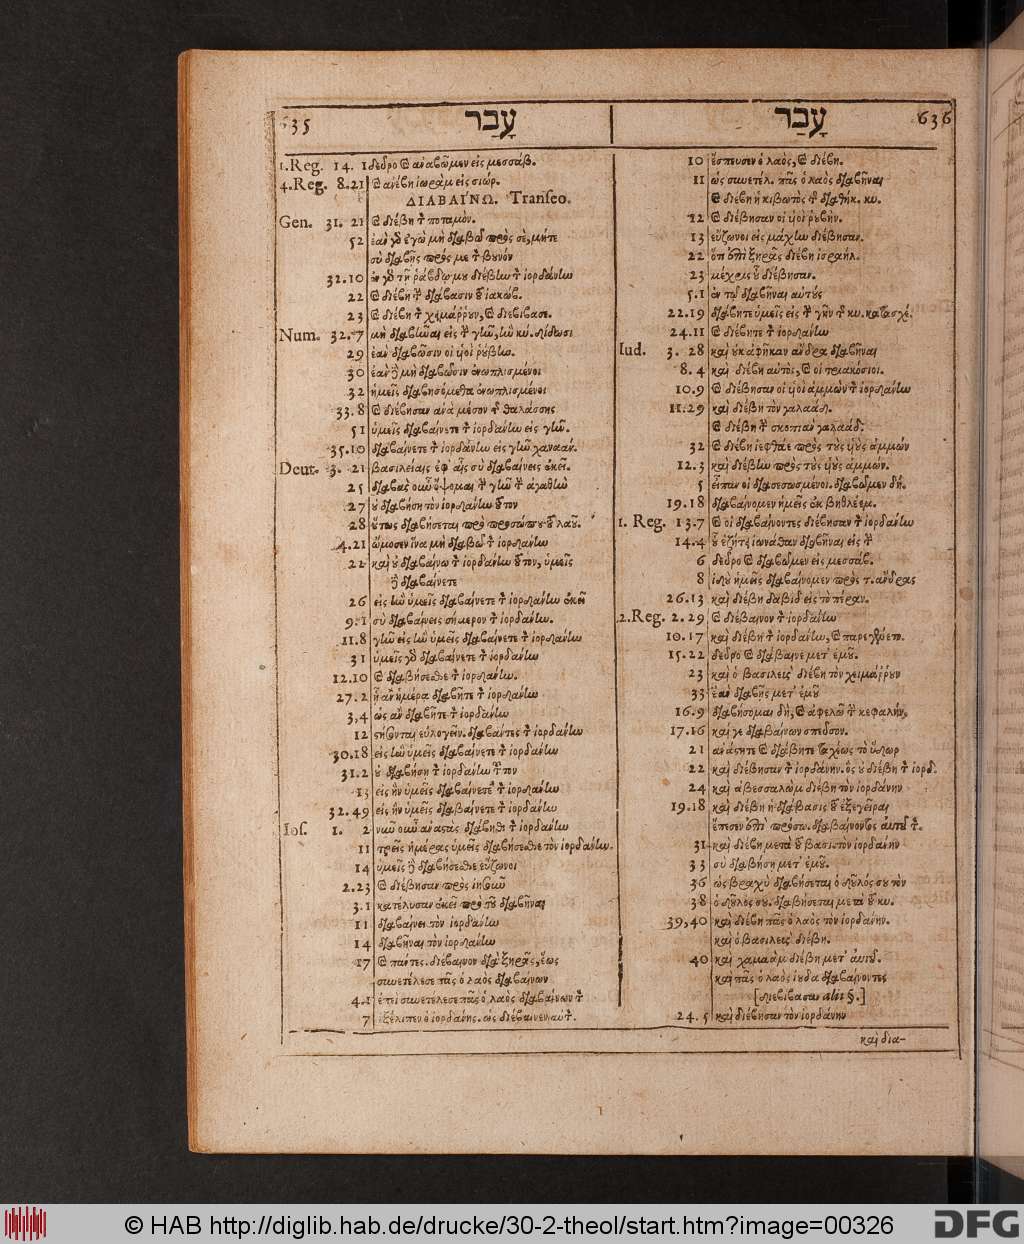 635 עָבַר
1. Reg. 14. 1 δεδρο καὶ ἀναβῶμεν εἰς μεσσάβ.
4. Reg. 8. 21 καὶ ἀνέβη ἰωρὰμ εἰς σιώρ.
ΔΙΑΒΑΙΝΩ. Transeo.
Gen. 31. 21 καὶ διέβη τὸν ποταμὸν.
52 ἐὰν γὸ ἐγὼ μὴ διαβῶ πρὸς σὲ, μήτε
σὺ διαβῇς πρὸς με τὸν βουνόν
32. 10 ἐν γὸ τῇ ῥάβδῳ μου διέβην τὸν ἰορδάνην
22 καὶ διέβη τὴν διάβασιν τοῦ ἰακώβ.
23 καὶ διέβη τὸν χειμάῤῥουν, καὶ διεβίβασε.
Num. 32. 7 μὴ διαβῆναι εἰς τὴν γῆν, ἣν κύ. δίδωσι
29 ἐὰν διαβῶσιν οἱ υἱοὶ ῥουβὴν.
30 ἐὰν δὲ μὴ διαβῶσιν ἐνωπλισμένοι
32 ἡμεῖς διαβησόμεθα ἐνωπλισμένοι
33. 8 καὶ διέβησαν ἀνὰ μέσον τῆς θαλάσσης
51 ὑμεῖς διαβαίνετε τὸν ἰορδάνην εἰς γῆν.
35. 10 διαβαίνετε τὸν ἰορδάνην εἰς γῆν χαναάν.
Deut. 3. 21 βασιλείαις ἐφ' ἃς σὺ διαβαίνεις ἐκεῖ.
25 διαβὰς οὖν ὄψομαι τὴν γῆν τὴν ἀγαθὴν
27 οὐ διαβήσῃ τὸν ἰορδάνην τοῦτον
28 οὗτος διαβήσεται πρὸ προσώπου τοῦ λαοῦ.
4. 21 ὤμοσεν ἵνα μὴ διαβῶ τὸν ἰορδάνην
22 καὶ οὐ διαβαίνω τὸν ἰορδάνην τοῦτον, ὑμεῖς
δὲ διαβαίνετε
26 εἰς ἣν ὑμεῖς διαβαίνετε τὸν ἰορδάνην ἐκεῖ
9. 1 σὺ διαβαίνεις σήμερον τὸν ἰορδάνην.
11. 8 γῆν εἰς ἣν ὑμεῖς διαβαίνετε τὸν ἰορδάνην
31 ὑμεῖς γὸ διαβαίνετε τὸν ἰορδάνην
12. 10 καὶ διαβήσεσθε τὸν ἰορδάνην.
27. 2 ᾗ ἂν ἡμέρᾳ διαβῆτε τὸν ἰορδάνην
3, 4 ὡς ἂν διαβῆτε τὸν ἰορδάνην
12 στήσονται εὐλογεῖν. διαβάντες τὸν ἰορδάνην
30. 18 εἰς ἣν ὑμεῖς διαβαίνετε τὸν ἰορδάνην
31. 2 οὐ διαβήσῃ τὸν ἰορδάνην τοῦτον
13 εἰς ἣν ὑμεῖς διαβαίνετε τὸν ἰορδάνην
32. 49 εἰς ἣν ὑμεῖς διαβαίνετε τὸν ἰορδάνην
Ios. 1. 2 νῦν οὖν ἀναστὰς διάβηθι τὸν ἰορδάνην
11 τρεῖς ἡμέρας ὑμεῖς διαβήσεσθε τὸν ἰορδάνην.
14 ὑμεῖς δὲ διαβήσεσθε εὔζωνοι
2. 23 καὶ διέβησαν πρὸς ἰησοῦν
3. 1 κατέλυσαν ἐκεῖ πρὸ τοῦ διαβῆναι
11 διαβαίνει τὸν ἰορδάνην
14 διαβῆναι τὸν ἰορδάνην
17 καὶ πάντες. διέβαινον διὰ ξηρᾶς, ἕως
συνετέλεσε πᾶς ὁ λαὸς διαβαίνων
4. 1 ἐπεὶ συνετέλεσε πᾶς ὁ λαὸς διαβαίνων τὸν
7 ἐξέλιπεν ὁ ἰορδάνης. ὡς διέβαινεν αὐτὸν.
עָבַר 636
10 ἔσπευσεν ὁ λαὸς, καὶ διέβη.
11 ὡς συνετέλ. πᾶς ὁ λαὸς διαβῆναι
καὶ διέβη ἡ κιβωτὸς τῆς διαθήκ. κυ.
12 καὶ διέβησαν οἱ υἱοὶ ῥουβὴν.
13 εὔζωνοι εἰς μάχην διέβησαν.
22 ὅτι ἐπὶ ξηρᾶς διέβη ἰσραήλ.
23 μέχρις οὗ διέβησαν.
5. 1 ἐν τῷ διαβῆναι αὐτούς
22. 19 διάβητε ὑμεῖς εἰς τὴν γῆν τῆς κυ. κατασχέ.
24. 11 καὶ διέβητε τὸν ἰορδάνην
Iud. 3. 28 καὶ οὐκ ἀφῆκαν ἄνδρα διαβῆναι
8. 4 καὶ διέβη αὐτὸς, καὶ οἱ τριακόσιοι.
10. 9 καὶ διέβησαν οἱ υἱοὶ ἀμμὼν τὸν ἰορδάνην
11. 29 καὶ διέβη τὸν γαλαάδ.
καὶ διέβη τὴν σκοπιὰν γαλαάδ.
32 καὶ διέβη ἰεφθάε πρὸς τοὺς υἱοὺς ἀμμών
12. 3 καὶ διέβην πρὸς τοὺς υἱοὺς ἀμμών.
5 εἶπαν οἱ διασεσωσμένοι. διαβῶμεν δή.
19. 18 διαβαίνομεν ἡμεῖς ἐκ βηθλέεμ.
1. Reg. 13. 7 καὶ οἱ διαβαίνοντες διέβησαν τὸν ἰορδάνην
14. 4 οὗ ἐζήτει ἰωνάθαν διαβῆναι εἰς τὴν
6 δεδρο καὶ διαβῶμεν εἰς μεσσάβ.
8 ἰδοὺ ἡμεῖς διαβαίνομεν πρὸς τ. ἄνδρας
26. 13 καὶ διέβη δαβὶδ εἰς τὸ πέραν.
2. Reg. 2. 29 καὶ διέβαινον τὸν ἰορδάνην
10. 17 καὶ διέβη τὸν ἰορδάνην, καὶ παρεγένετο.
15. 22 δεδρο καὶ διάβαινε μετ' ἐμοῦ.
23 καὶ ὁ βασιλεὺς διέβη τὸν χειμάῤῥουν
33 ἐὰν διαβῇς μετ' ἐμοῦ
16. 9 διαβήσομαι δὴ, καὶ ἀφελῶ τὴν κεφαλήν,
17. 16 καί γε διαβαίνων σπεῦσον.
21 ἀνάστητε καὶ διάβητε ταχέως τὸ ὕδωρ
22 καὶ διέβησαν τὸν ἰορδάνην. ὃς οὐ διέβη τὸν ἰορδ.
24 καὶ ἀβεσσαλὼμ διέβη τὸν ἰορδάνην
19. 18 καὶ διέβη ἡ διάβασις τοῦ ἐξεγεῖραι
ἔπεσεν ἐπὶ πρόσω. διαβαίνοντος αὐτοῦ τὸν.
31 καὶ διέβη μετὰ τοῦ βασι. τὸν ἰορδάνην
33 σὺ διαβήσῃ μετ' ἐμοῦ.
36 ὡς βραχὺ διαβήσεται ὁ δοῦλός σου τὸν
38 ὁ δοῦλος σου. διαβήσεται μετὰ τοῦ κυ.
39, 40 καὶ διέβη πᾶς ὁ λαὸς τὸν ἰορδάνην.
καὶ ὁ βασιλεὺς διέβη.
40 καὶ χαμαὰμ διέβη μετ' αὐτοῦ.
καὶ πᾶς ὁ λαὸς ἰούδα διαβαίνοντες
[διεβίβασαν alii §.]
24. 5 καὶ διέβησαν τὸν ἰορδάνην
καὶ δια-
© HAB http://diglib.hab.de/drucke/30-2-theol/start.htm?image=00326
DFG